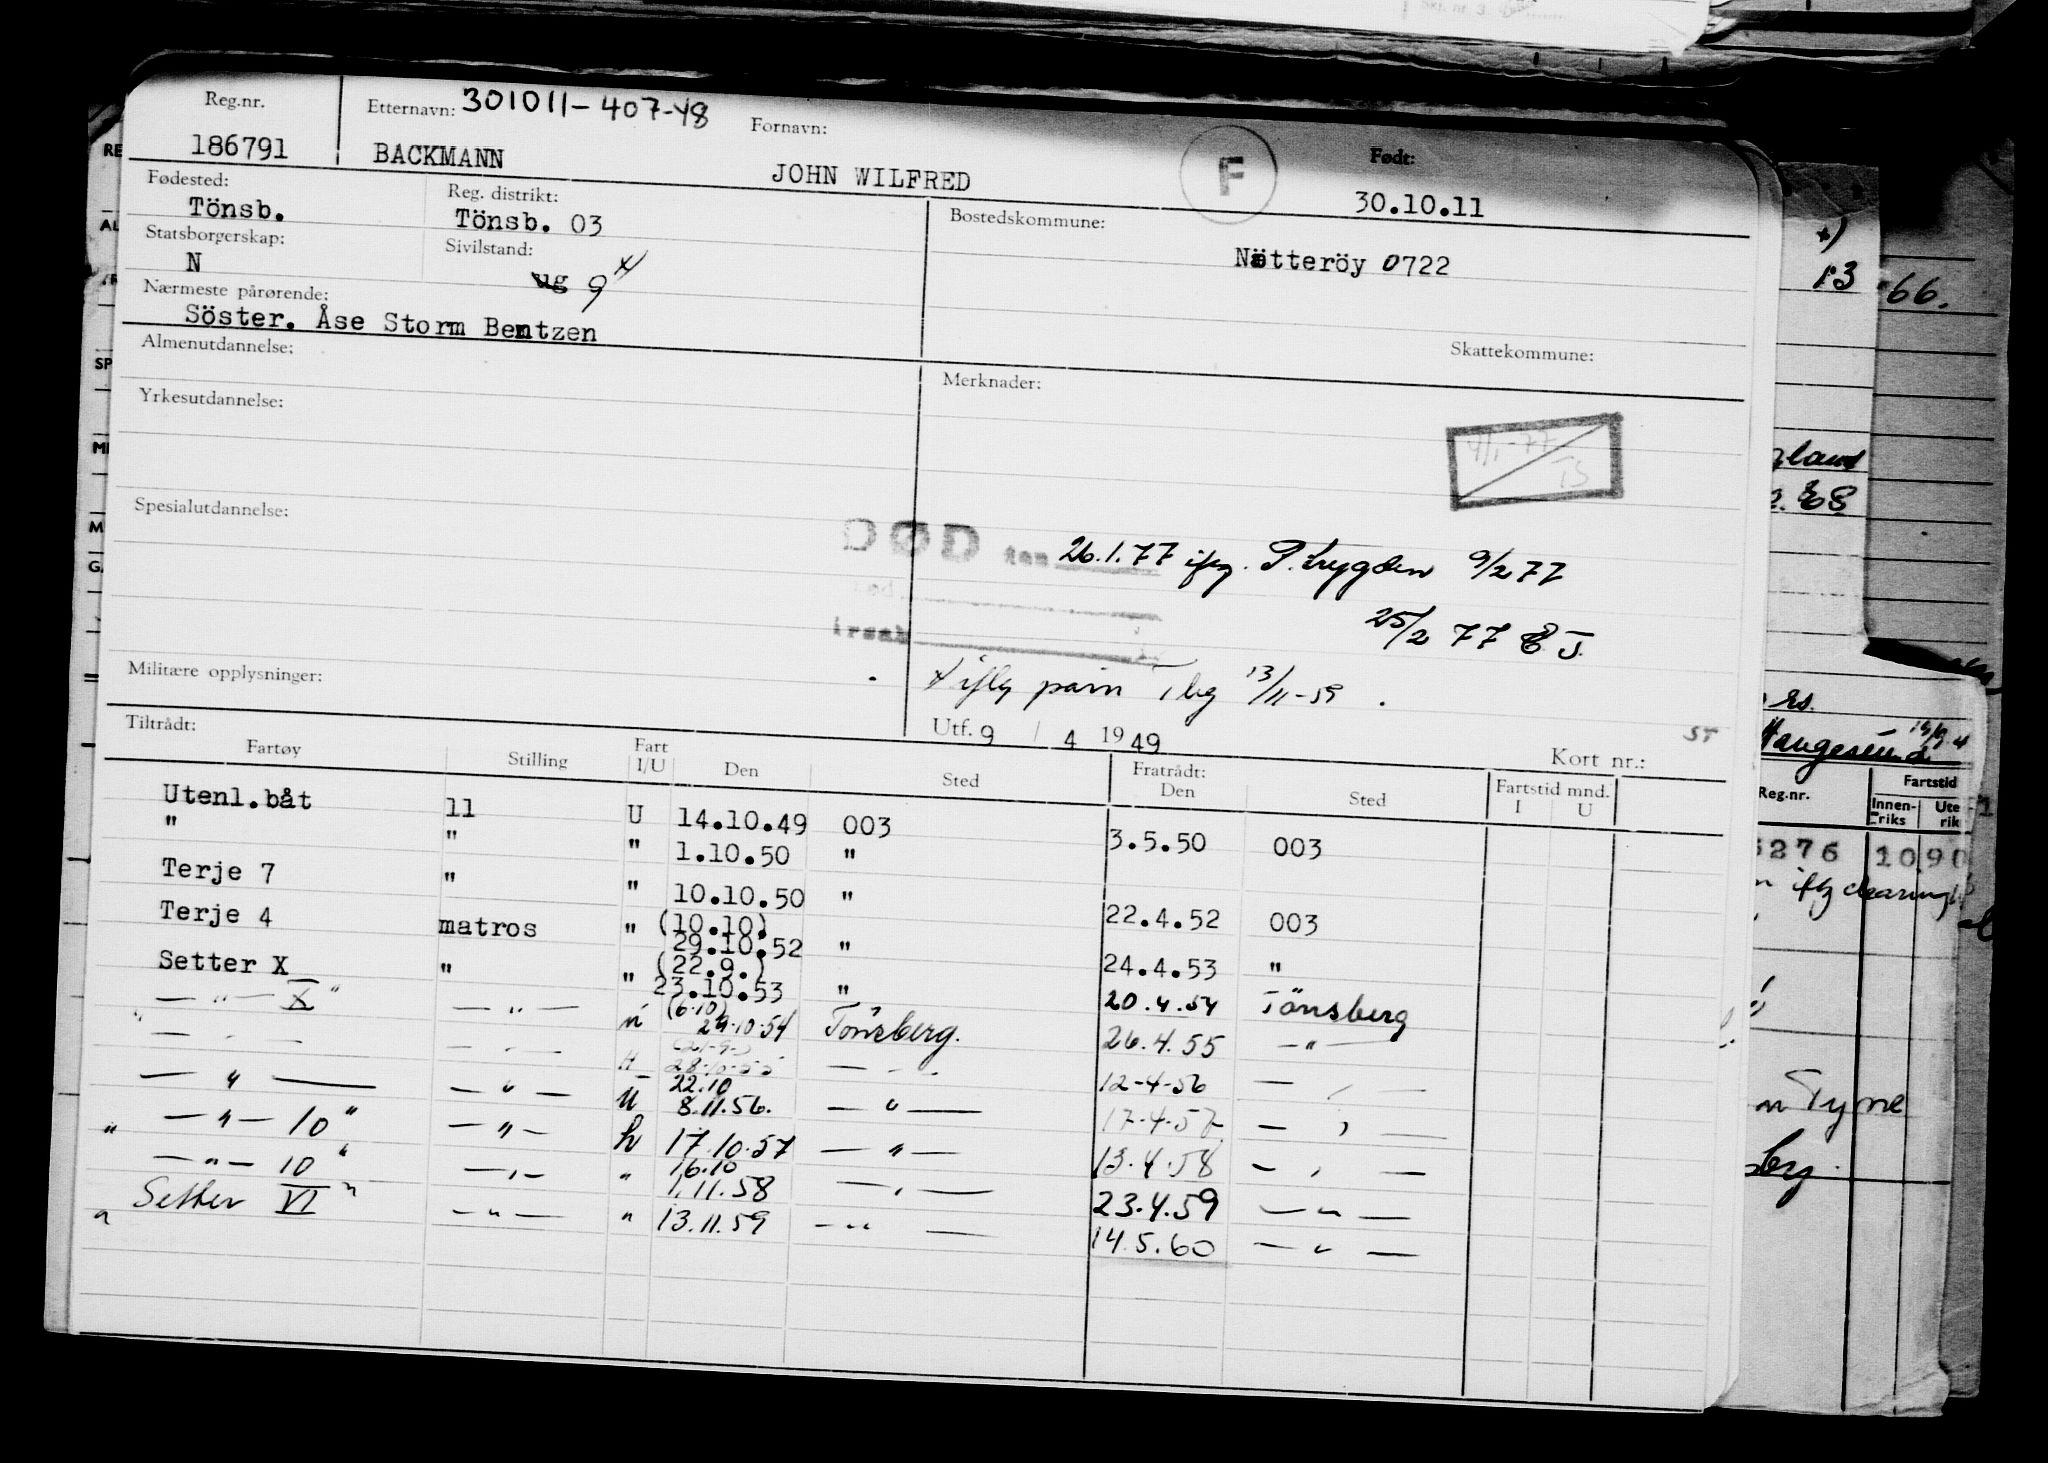 Reg.nr. Etternavn: 301011-407-48 Fornavn: Født:
186791 BACKMANN JOHN WILFRED F 30.10.11
Fødested: Reg. distrikt: Bostedskommune:
Tönsb. Tönsb. 03
Statsborgerskap: Sivilstand: Nøtteröy 0722
N ug g x)
Nærmeste pårørende:
Söster. Åse Storm Bentzen
Almenutdannelse: Skattekommune:
Merknader:
Yrkesutdannelse:
4/1-77
TS
Spesialutdannelse:
DØD den 26.1.77 iflg. P.trygden 9/2 77
25/2 77 E.J.
Militære opplysninger:
x iflg 13/11-59.
Utf. 9 / 4 1949 ST
Tiltrådt: Kort nr.:
Fartøy Stilling Fart I/U Den Sted Fratrådt: Den Sted Fartstid mnd. I U
Utenl.båt ll U 14.10.49 003 3.5.50 003
" " " 1.10.50 "
Terje 7 " " 10.10.50 " 22.4.52 003
Terje 4 matros " (10.10) 29.10.52 " 24.4.53 "
Setter X " " (22.9.) 23.10.53 " 20.4.54 Tönsberg
— " — X " — " — " (6.10) 29.10.54 Tönsberg. 26.4.55 — " —
28.10.55 12-4-56
— " — — " — U 22.10 8.11.56. — " — 17-4-57
" — " — 10 " — " — 17.10.57 — " — 13.4.58
— " — 10 " " 16.10 1.11.58 23.4.59 — " —
" Setter VI " — " — " 13.11.59 — " — 14.5.60 — " —
x)
13 66.
Reg.nr. Fartstid
Innen-riks Ute rik
276 10 90
iflg clearing
Tyne